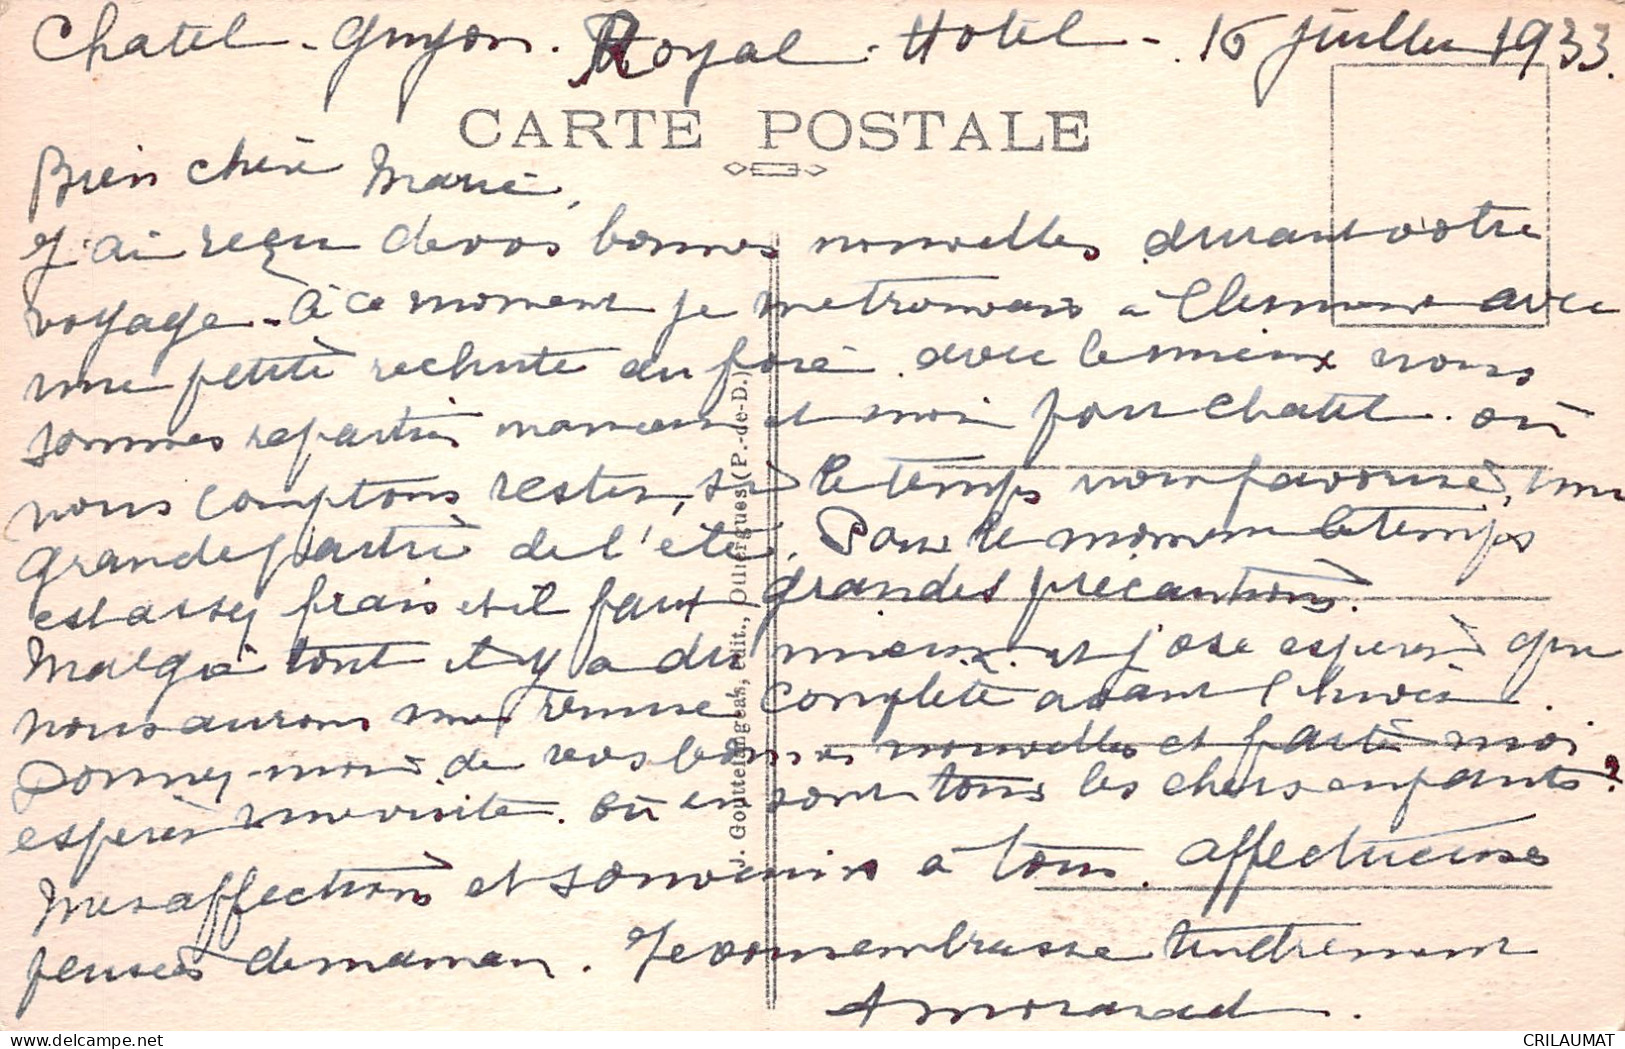 Chatel-Guyon. Royal-Hotel - 16 juillet 1933.
CARTE POSTALE
Bien chère Marie,
J'ai reçu de vos bonnes nouvelles durant votre
voyage. à ce moment je me trouvais à Clermont avec
une petite rechute du foie. avec le mieux nous
sommes reparties maman et moi pour Chatel. où
nous comptons rester, si le temps nous favorise, une
grande partie de l'été. Pour le moment le temps
est assez frais et il faut grandes précautions.
Malgré tout il y a du mieux et j'ose espérer que
nous aurons une remise complète avant l'hiver.
Donnez-moi de vos bonnes nouvelles et faites moi
espérer une visite. où en sont tous les chers enfants?
Mes affections et souvenirs à tous. affectueuses
pensées de maman. Je vous embrasse tendrement
J. Gouttefangeas, édit., Olliergues (P.-de-D.)
CRILAUMAT